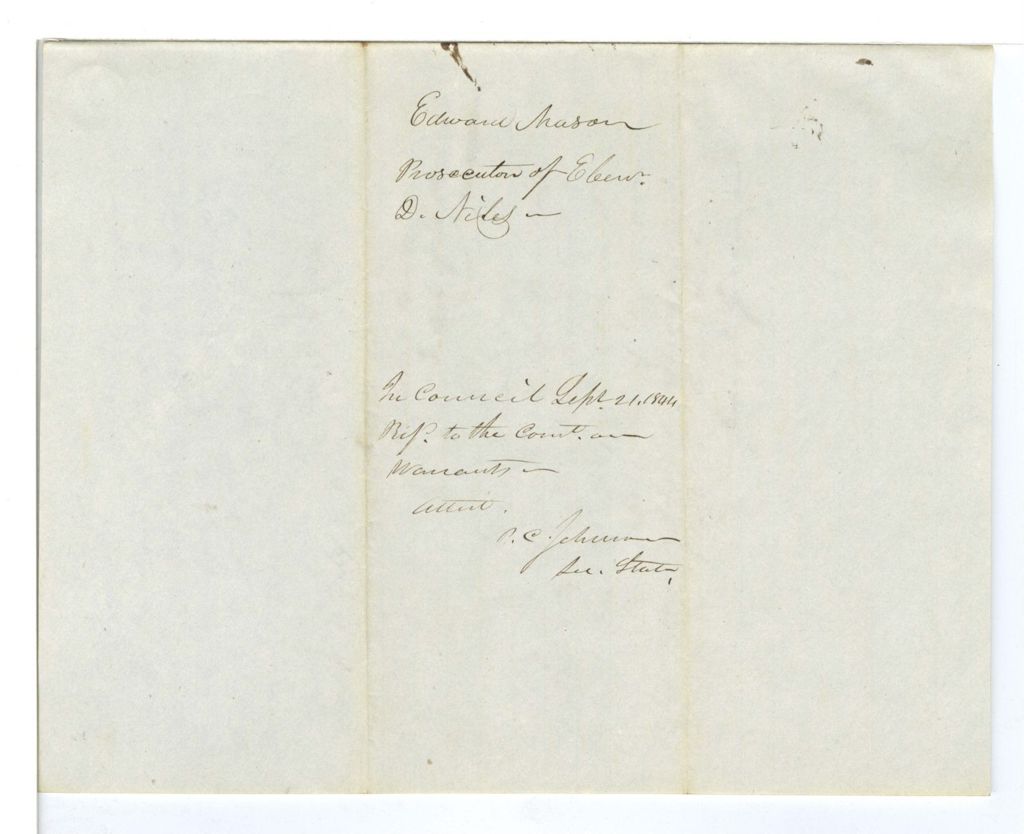 Edward Mason
Prosecution of Eben.
D. Niles
In Council Sept. 21. 1844
Ref. to the Comt. on
Warrants
Attest.
P. C. Johnson
Sec. State.